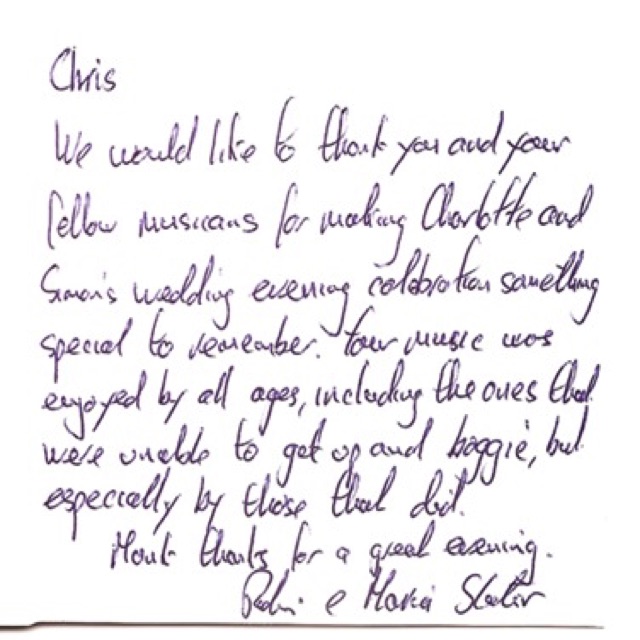 Chris
We would like to thank you and your
fellow musicians for making Charlotte and
Simon's wedding evening celebration something
special to remember. Your music was
enjoyed by all ages, including the ones that
were unable to get up and boggie, but
especially by those that did.
thanks for a great evening.
Maria